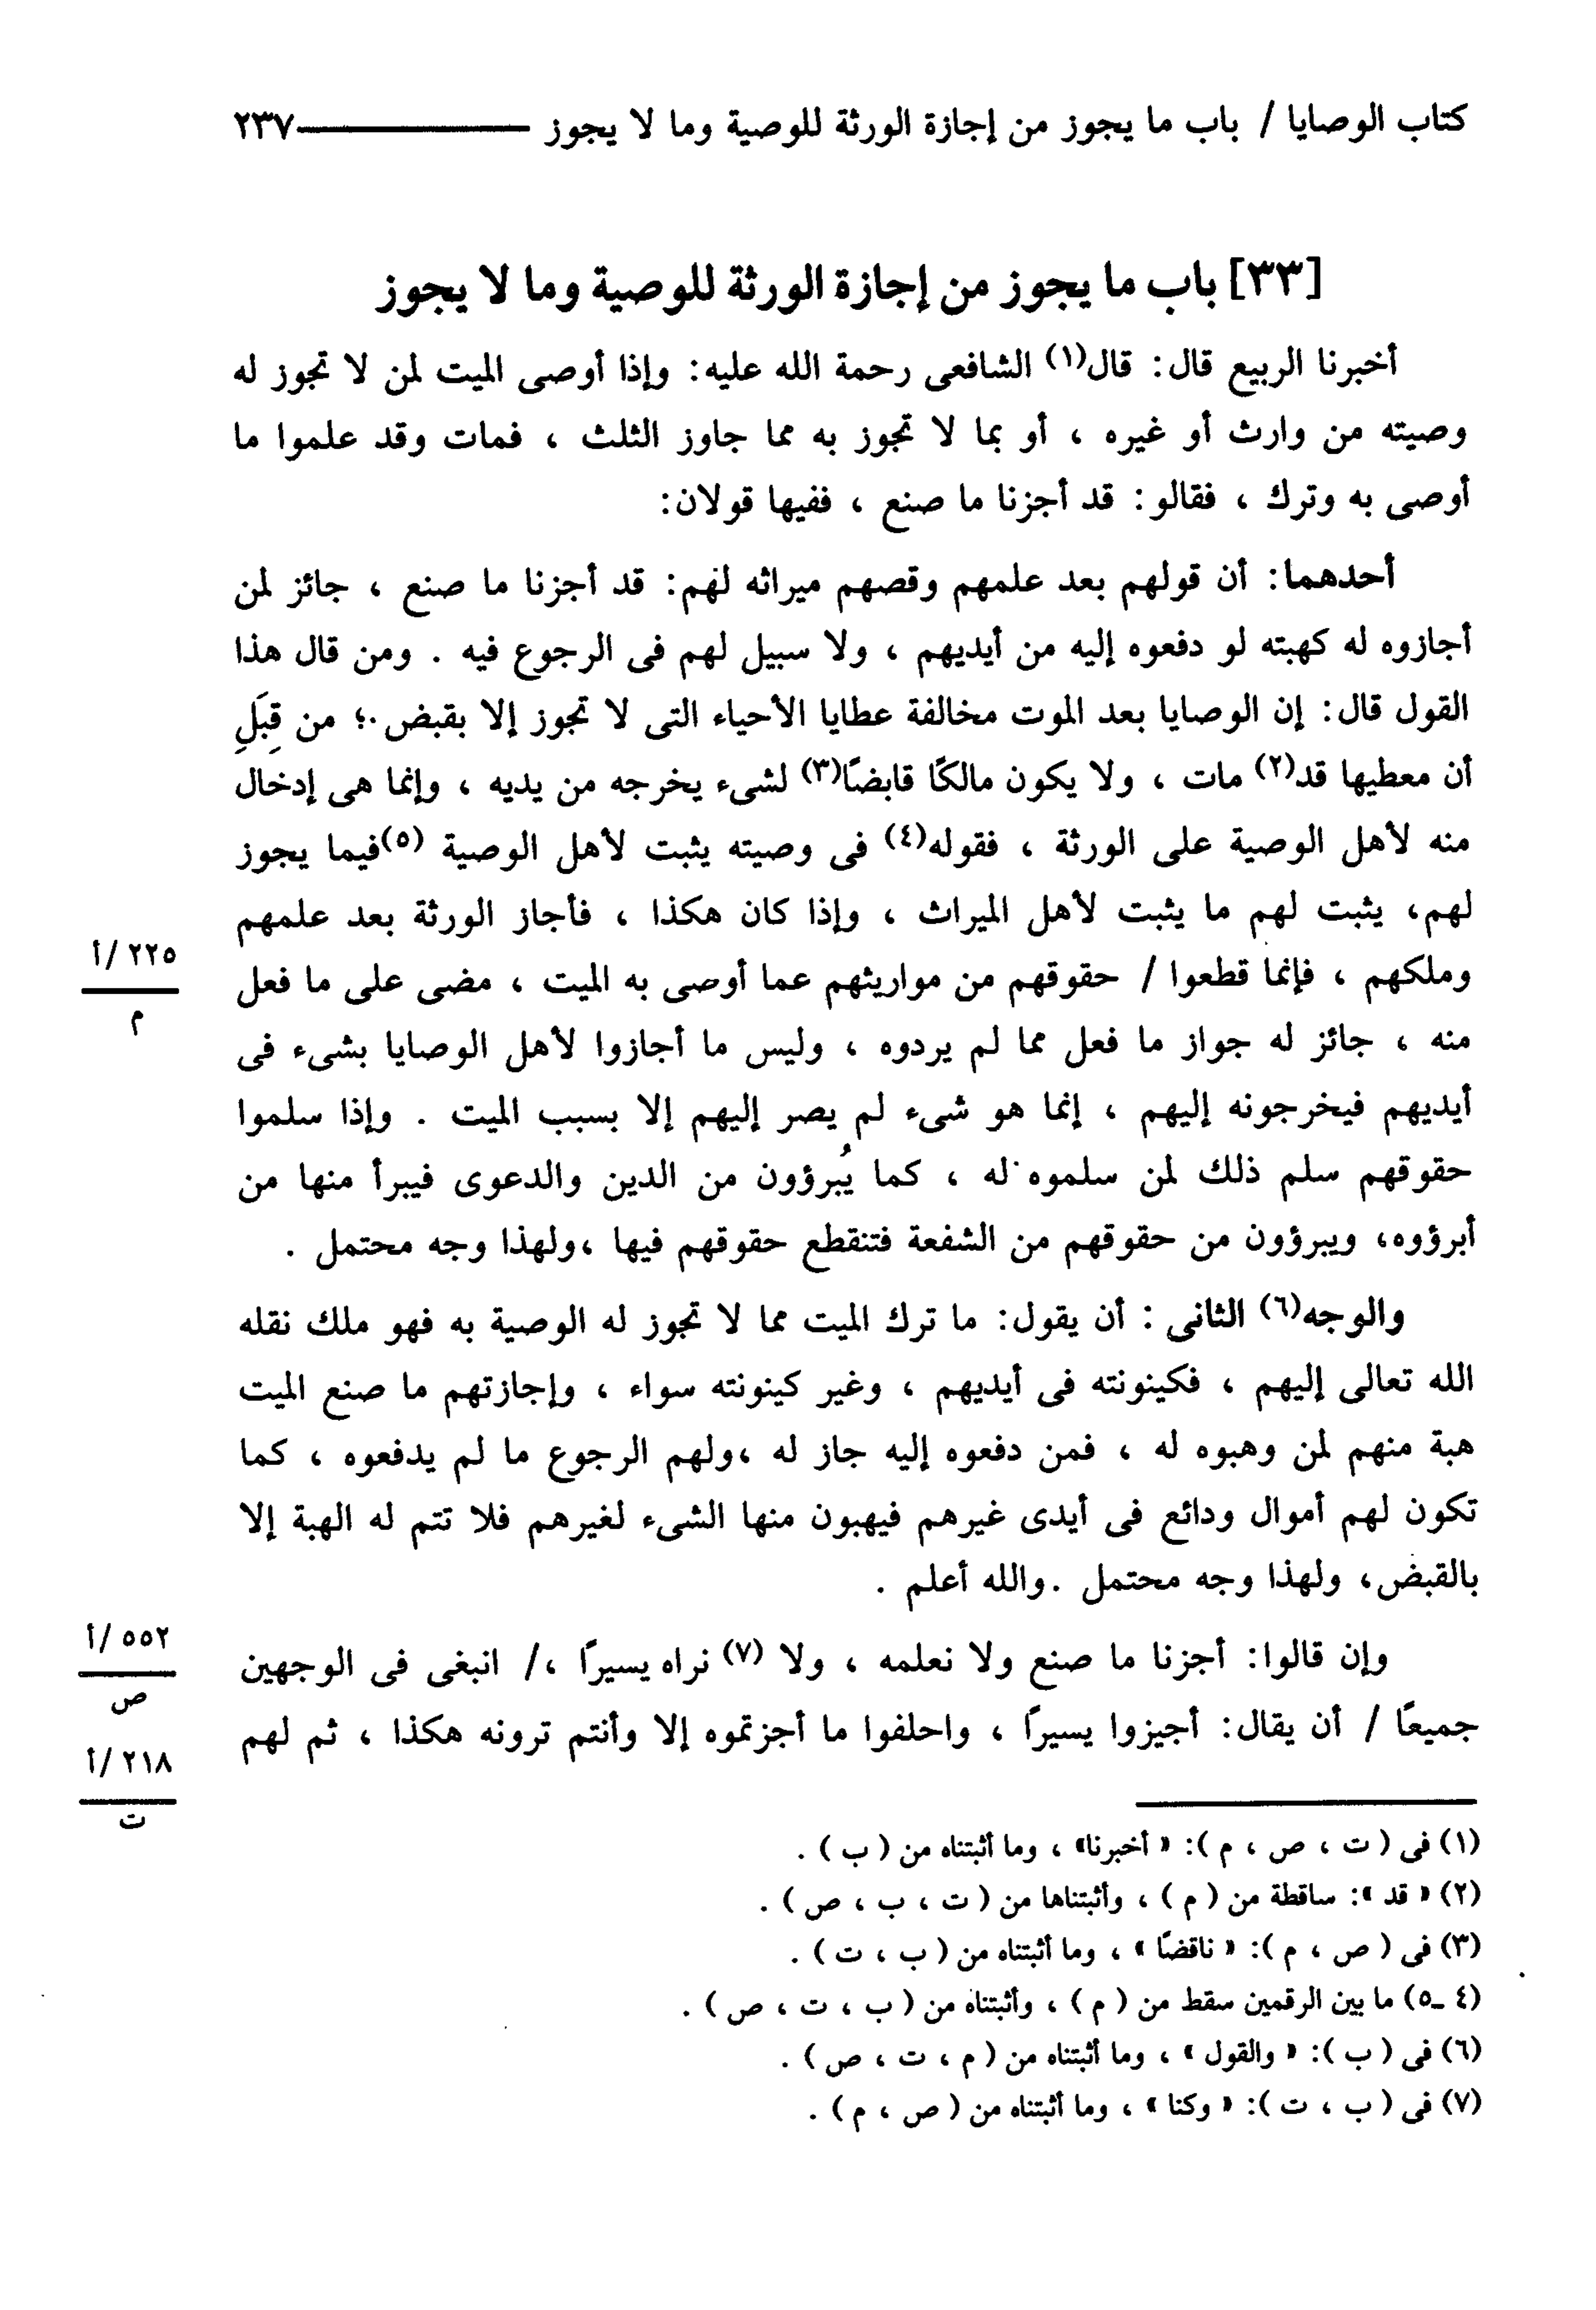 كتاب الوصايا / باب ما يجوز من إجازة الورثة للوصية وما لا يجوز ٢٣٧
[٣٣] باب ما يجوز من إجازة الورثة للوصية وما لا يجوز
أخبرنا الربيع قال: قال(١) الشافعى رحمة الله عليه: وإذا أوصى الميت لمن لا تجوز له
وصيته من وارث أو غيره ، أو بما لا تجوز به مما جاوز الثلث ، فمات وقد علموا ما
أوصى به وترك ، فقالو: قد أجزنا ما صنع ، ففيها قولان:
أحدهما: أن قولهم بعد علمهم وقصهم ميراثه لهم: قد أجزنا ما صنع ، جائز لمن
أجازوه له كهبته لو دفعوه إليه من أيديهم ، ولا سبيل لهم فى الرجوع فيه . ومن قال هذا
القول قال: إن الوصايا بعد الموت مخالفة عطايا الأحياء التى لا تجوز إلا بقبض ؛ من قِبَلِ
أن معطيها قد(٢) مات ، ولا يكون مالكًا قابضًا(٣) لشىء يخرجه من يديه ، وإنما هى إدخال
منه لأهل الوصية على الورثة ، فقوله(٤) فى وصيته يثبت لأهل الوصية (٥)فيما يجوز
لهم، يثبت لهم ما يثبت لأهل الميراث ، وإذا كان هكذا ، فأجاز الورثة بعد علمهم
وملكهم ، فإنما قطعوا / حقوقهم من مواريثهم عما أوصى به الميت ، مضى على ما فعل
٢٢٥ /أ
م
منه ، جائز له جواز ما فعل مما لم يردوه ، وليس ما أجازوا لأهل الوصايا بشىء فى
أيديهم فيخرجونه إليهم ، إنما هو شىء لم يصر إليهم إلا بسبب الميت . وإذا سلموا
حقوقهم سلم ذلك لمن سلموه له ، كما يُبرؤون من الدين والدعوى فيبرأ منها من
أبرؤوه، ويبرؤون من حقوقهم من الشفعة فتنقطع حقوقهم فيها ،ولهذا وجه محتمل .
والوجه(٦) الثانى : أن يقول: ما ترك الميت مما لا تجوز له الوصية به فهو ملك نقله
الله تعالى إليهم ، فكينونته فى أيديهم ، وغير كينونته سواء ، وإجازتهم ما صنع الميت
هبة منهم لمن وهبوه له ، فمن دفعوه إليه جاز له ،ولهم الرجوع ما لم يدفعوه ، كما
تكون لهم أموال ودائع فى أيدى غيرهم فيهبون منها الشىء لغيرهم فلا تتم له الهبة إلا
بالقبض، ولهذا وجه محتمل .والله أعلم .
وإن قالوا: أجزنا ما صنع ولا نعلمه ، ولا (٧) نراه يسيرًا ،/ انبغى فى الوجهين
٥٥٢ /أ
ص
جميعًا / أن يقال: أجيزوا يسيرًا ، واحلفوا ما أجزتموه إلا وأنتم ترونه هكذا ، ثم لهم
٢١٨ /أ
ت
(١) فى ( ت ، ص ، م ): « أخبرنا» ، وما أثبتناه من ( ب ) .
(٢) « قد »: ساقطة من ( م ) ، وأثبتناها من ( ت ، ب ، ص ) .
(٣) فى ( ص ، م ): « ناقضًا » ، وما أثبتناه من ( ب ، ت ) .
(٤ -٥) ما بين الرقمين سقط من ( م ) ، وأثبتناه من ( ب ، ت ، ص ) .
(٦) فى ( ب ): « والقول » ، وما أثبتناه من ( م ، ت ، ص ) .
(٧) فى ( ب ، ت ): « وكنا » ، وما أثبتناه من ( ص ، م ) .